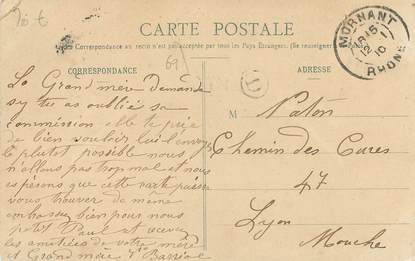 CARTE POSTALE
Toute Correspondance au recto n'est pas acceptée par tous les Pays Étrangers. (Se renseigner
CORRESPONDANCE
ADRESSE
MORNANT
12 10
RHONE
69
La Grand mère demande
sy tu as oublié sa
commission elle te prie
de bien vouloir lui l'envoyer
le plutot possible nous
n'allons pas trop mal et nous
espérons que cette carte puisse
vous trouver de même
embrasse bien pour nous
petit Paul et recevez
les amitiées de votre mère
et Grand mère
M Paton
Chemin des Cures
47
Lyon
Mouche